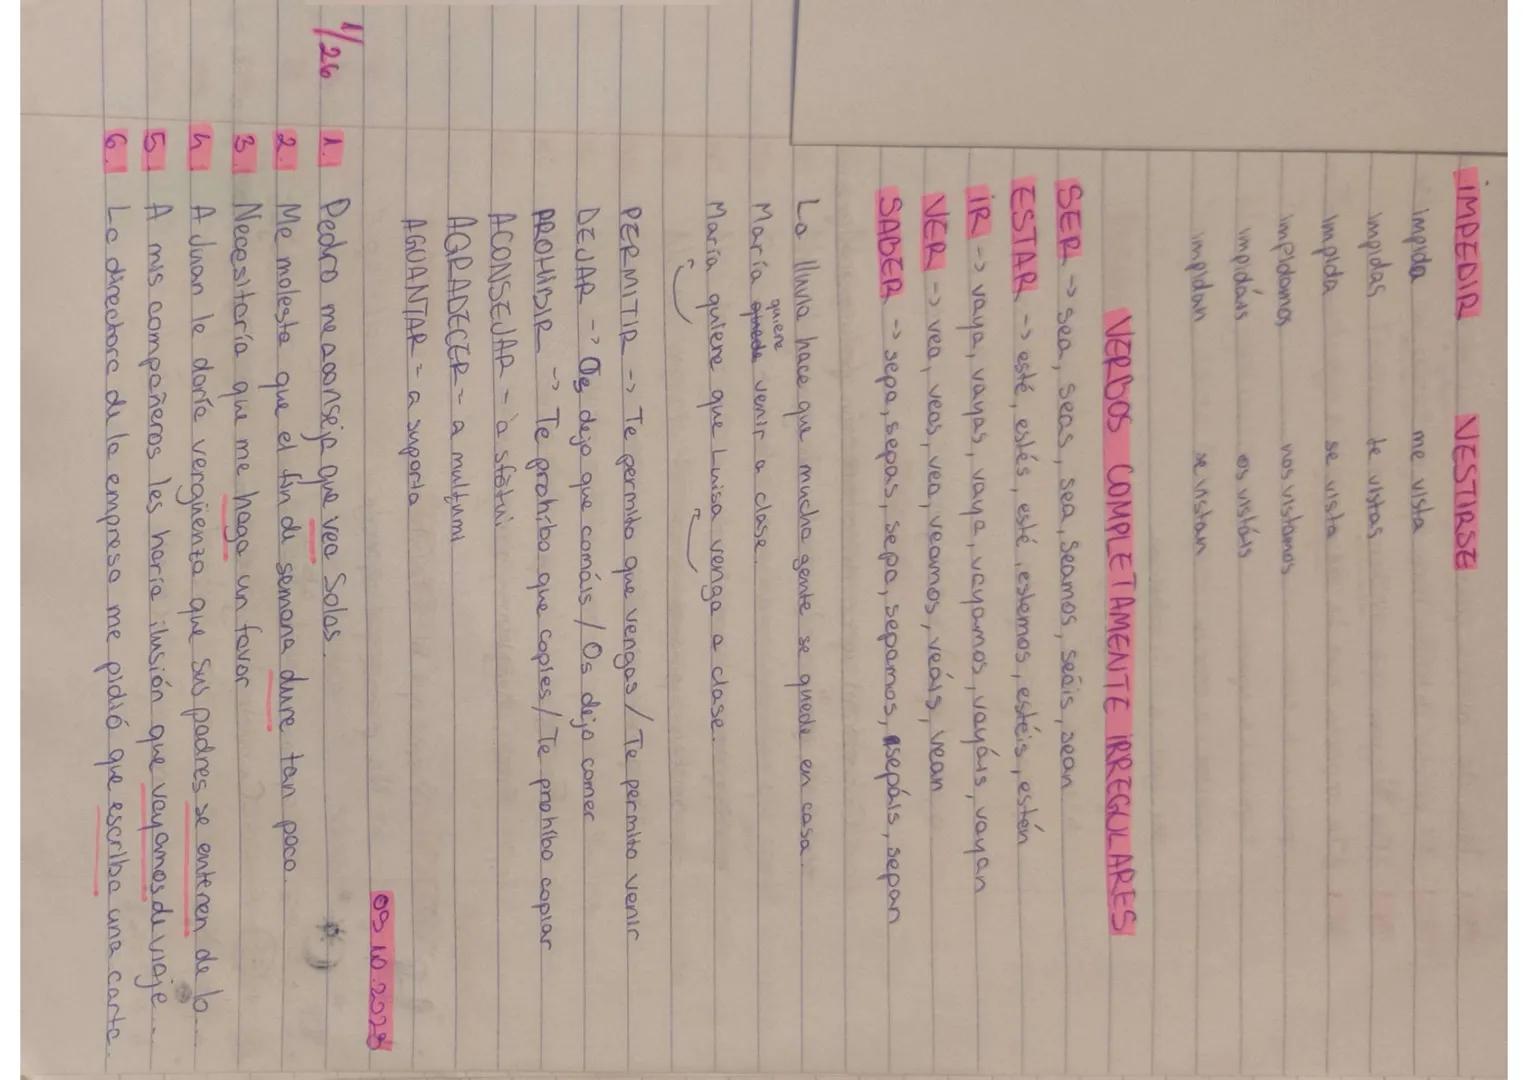 IMPEDIR VESTIRSE
impida me vista
impidas te vistas
impida se vista
impidamos nos vistamos
impidáis os vistáis
impidan se vistan
VERBOS COMPLETAMENTE IRREGULARES
SER -> sea, seas, sea, seamos, seáis, sean
ESTAR -> esté, estés, esté, estemos, estéis, estén
IR -> vaya, vayas, vaya, vayamos, vayáis, vayan
VER -> vea, veas, vea, veamos, veáis, vean
SABER -> sepa, sepas, sepa, sepamos, sepáis, sepan
La lluvia hace que mucha gente se quede en casa.
quiere
María queda venir a clase.
María quiere que Luisa venga a clase.
PERMITIR -> Te permito que vengas / Te permito venir
DEJAR -> Os dejo que comáis / Os dejo comer
PROHIBIR -> Te prohibo que copies / Te prohibo copiar
ACONSEJAR = a sfătui
AGRADECER = a mulțumi
AGUANTAR = a suporta
09.10.2023
1/26 1. Pedro me aconseja que vea Solas.
2. Me molesta que el fin de semana dure tan poco.
3. Necesitaría que me haga un favor
4. A Juan le daría vergüenza que sus padres se enteren de lo...
5. A mis compañeros les haría ilusión que vayamos de viaje...
6. La directora de la empresa me pidió que escriba una carta.